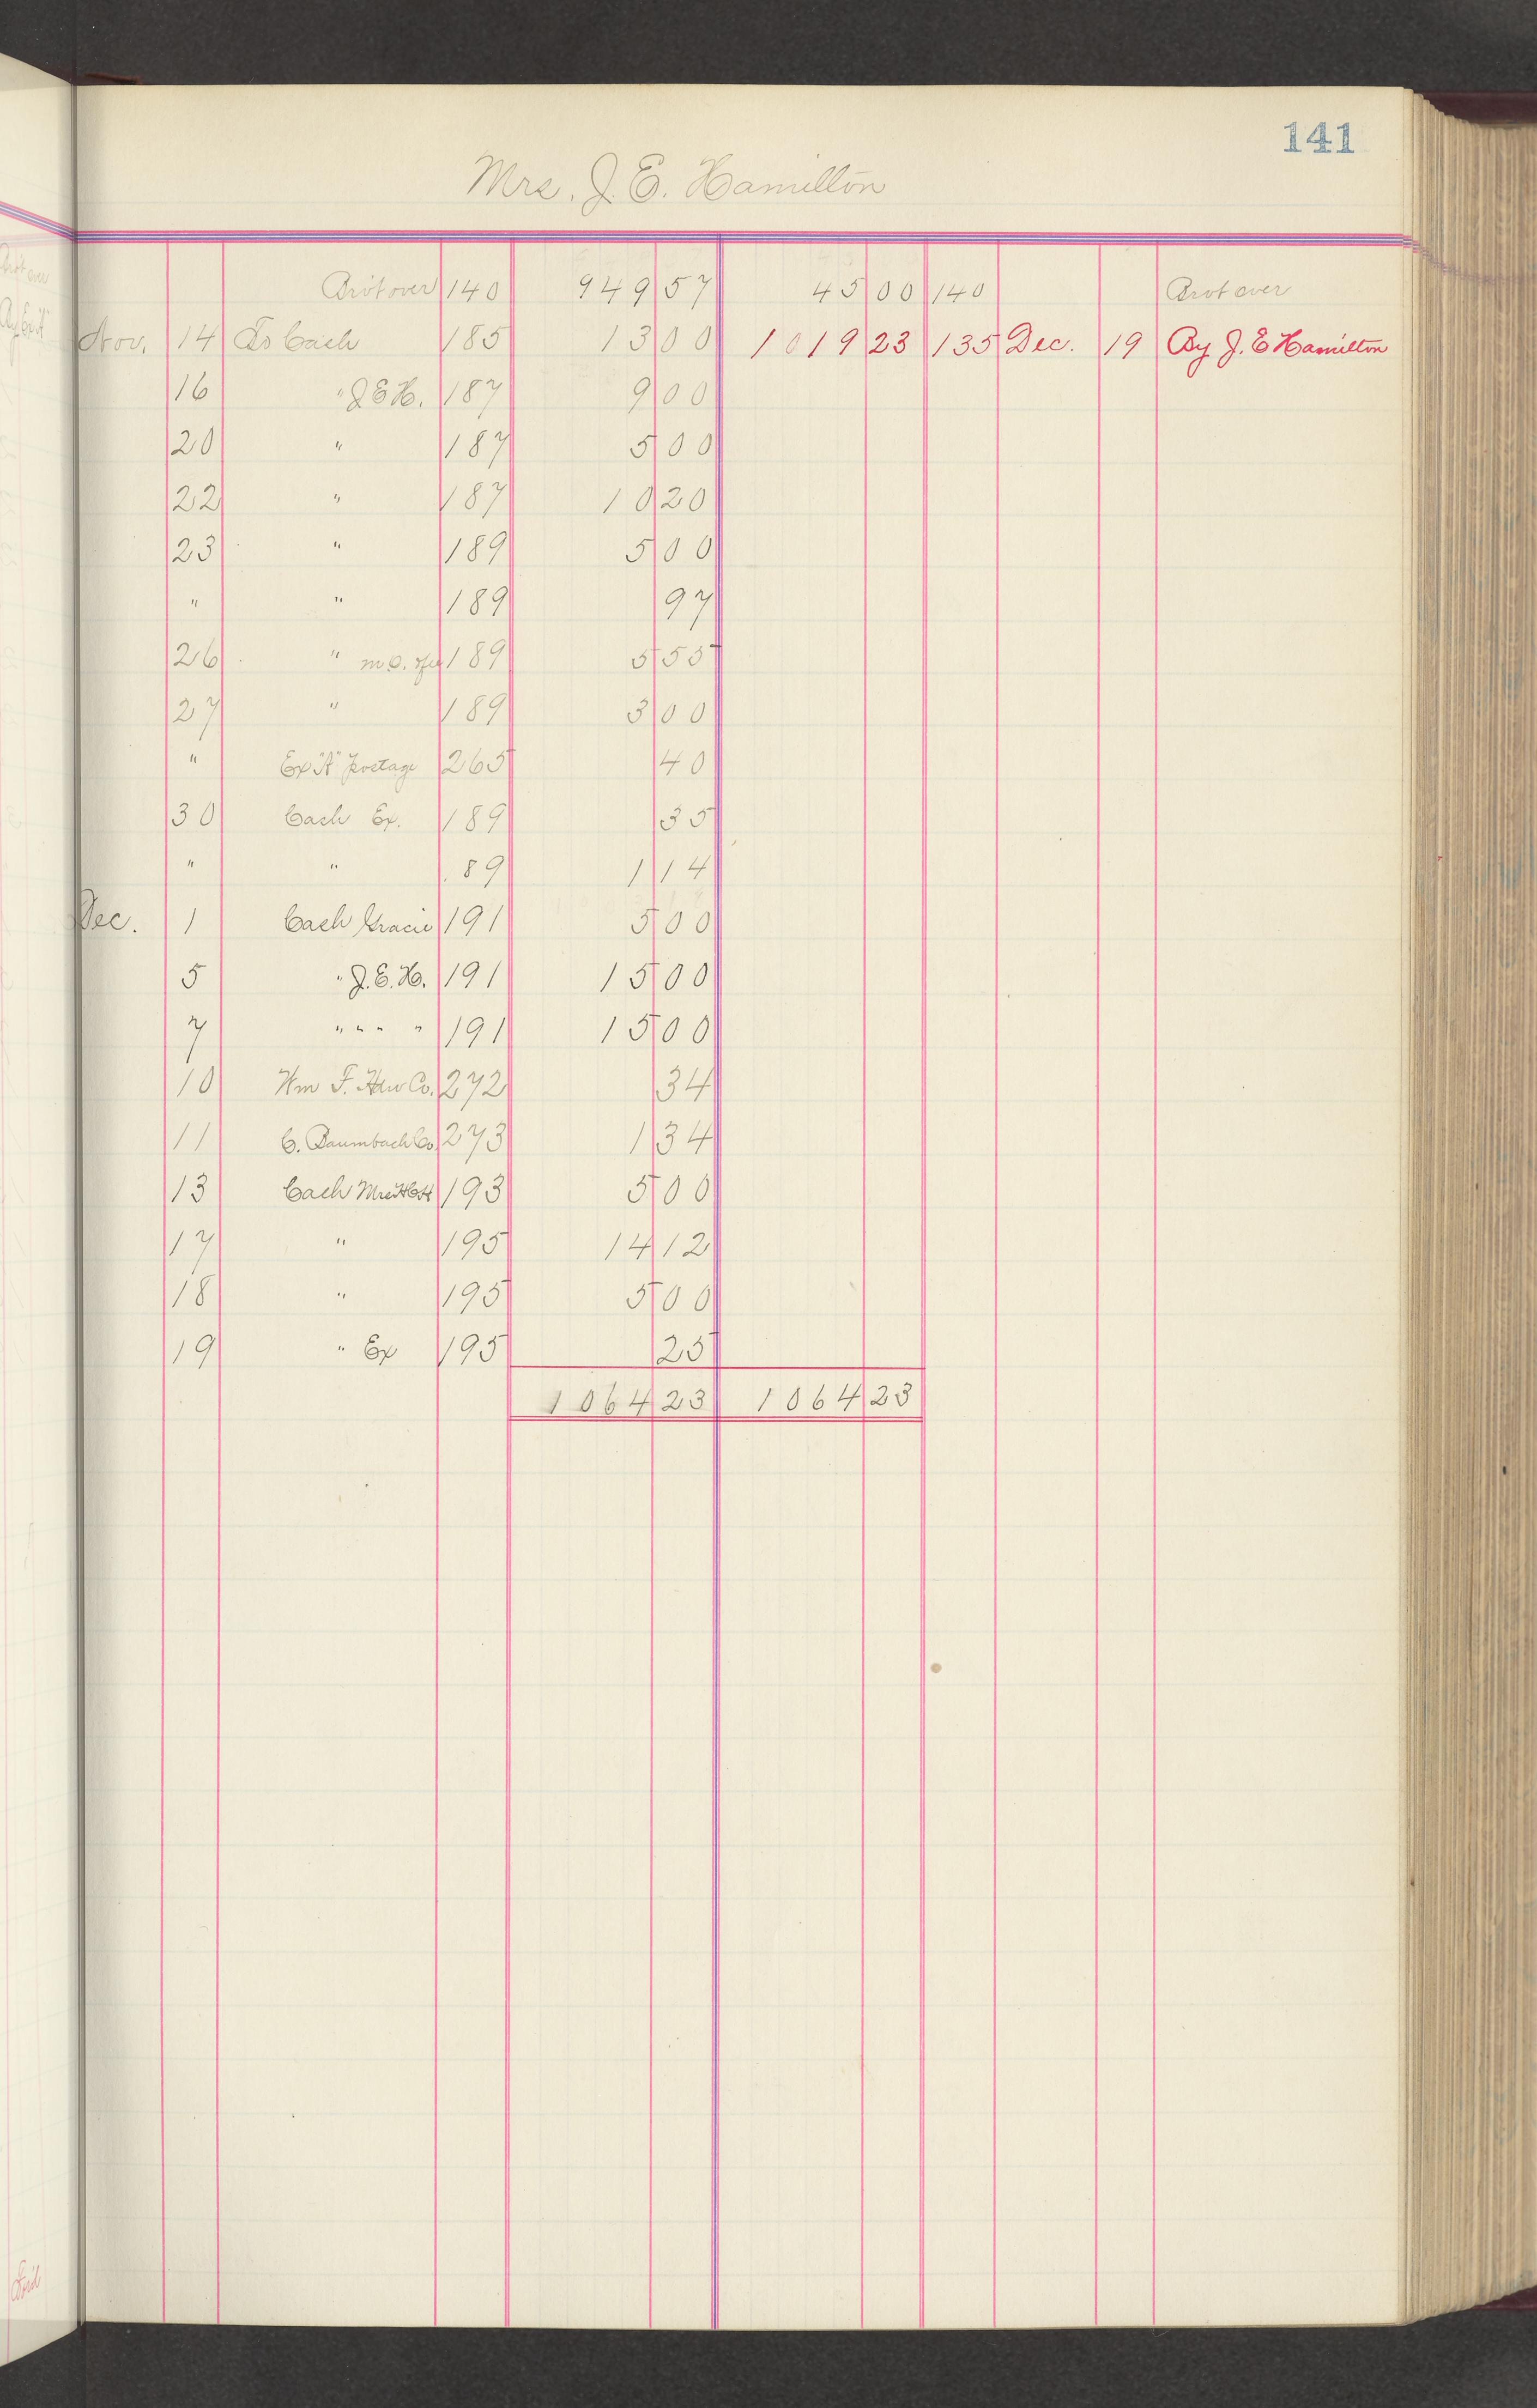 141
Mrs. J. E. Hamilton
Bro't over 140 949 57 45 00 140 Brot over
Nov. 14 To Cash 185 13 00 1019 23 135 Dec. 19 By J. E Hamilton
16 " J E H. 187 9 00
20 " 187 5 00
22 " 187 10 20
23 " 189 5 00
" " 189 97
26 " 189 5 55
27 " 189 3 00
" Ex "A" postage 265 40
30 Cash Ex. 189 35
" " 89 1 14
Dec. 1 Cash Gracie 191 5 00
5 " J. E. H. 191 15 00
7 " " " " 191 15 00
10 Wm F. Hdw Co. 272 34
11 C. Baumbach Co. 273 1 34
13 Cash 193 5 00
17 " 195 14 12
18 " 195 5 00
19 " Ex 195 25
1064 23 1064 23